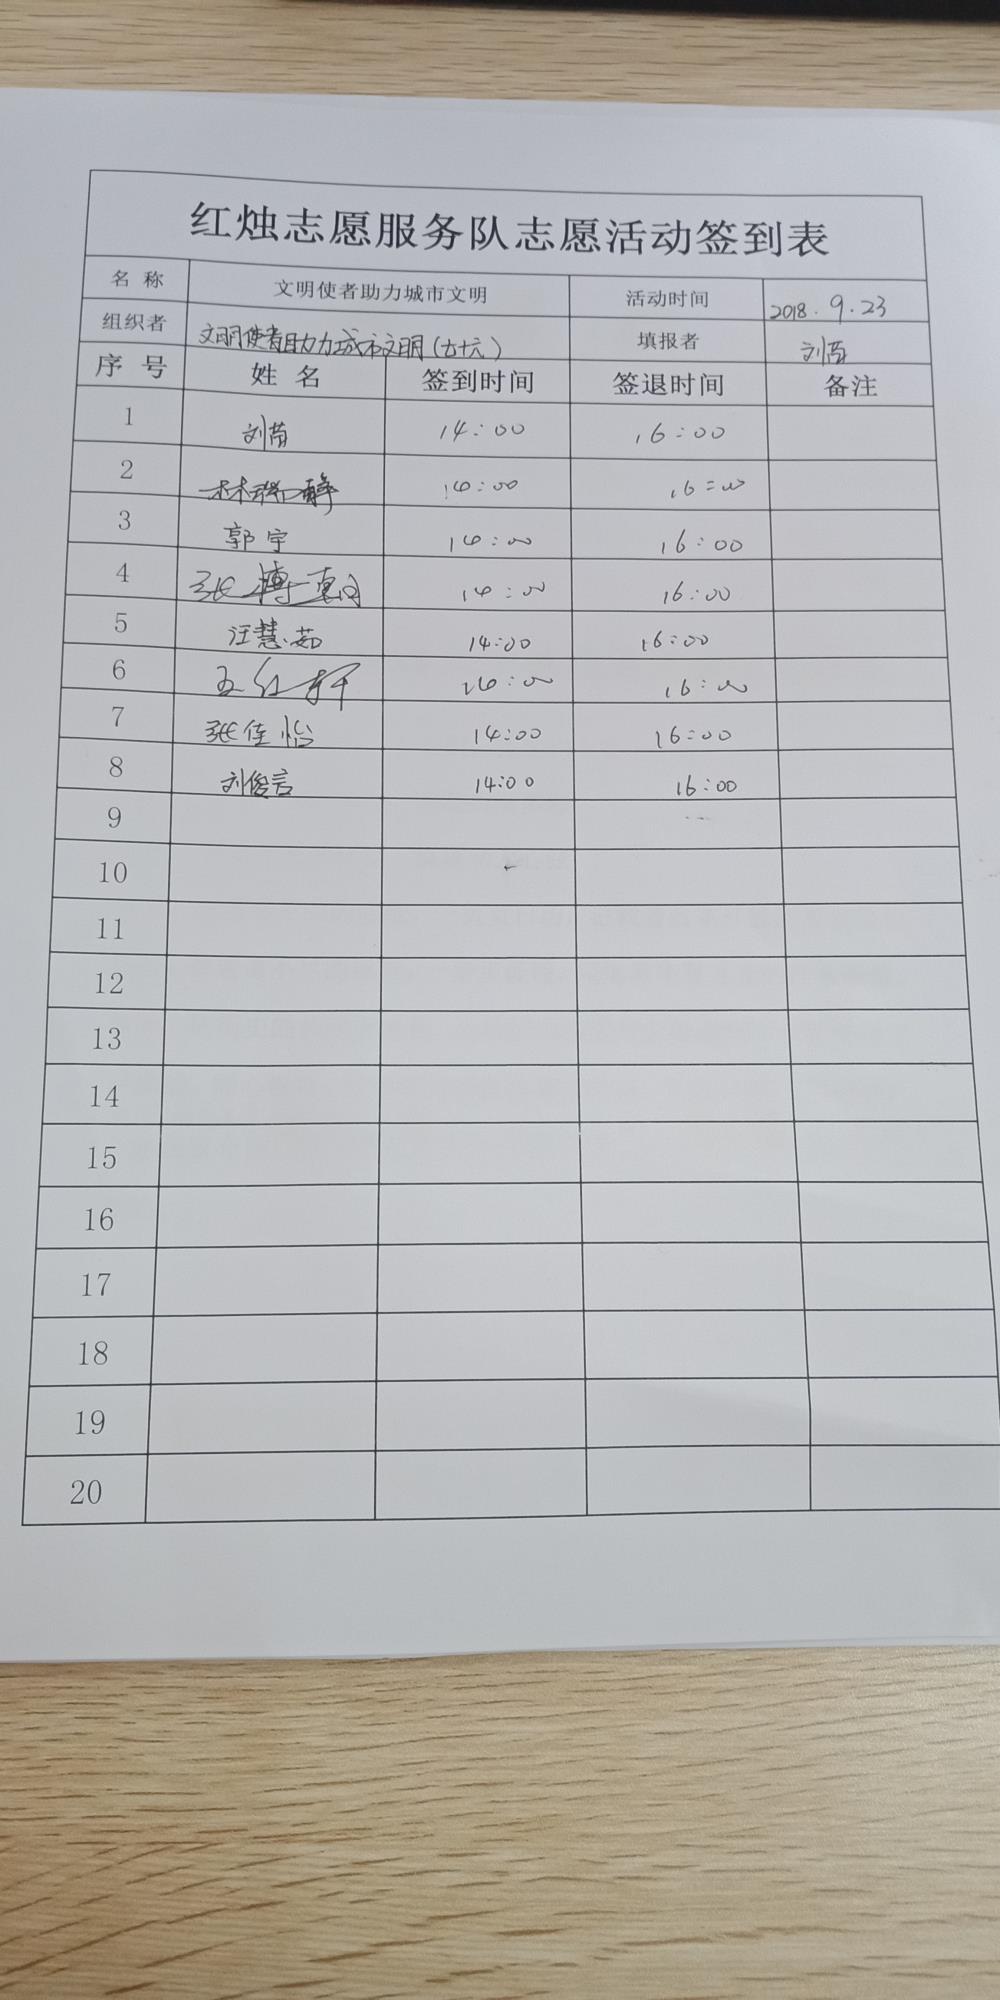 红烛志愿服务队志愿活动签到表
名 称 文明使者助力城市文明 活动时间 2018.9.23
组织者 文明使者助力城市文明(五十六) 填报者 刘苗
序 号 姓 名 签到时间 签退时间 备注
1 刘苗 14:00 16:00
2 14:00 16:00
3 郭宇 14:00 16:00
4 张博 14:00 16:00
5 汪慧茹 14:00 16:00
6 王红轩 14:00 16:00
7 张佳怡 14:00 16:00
8 刘俊言 14:00 16:00
9
10
11
12
13
14
15
16
17
18
19
20